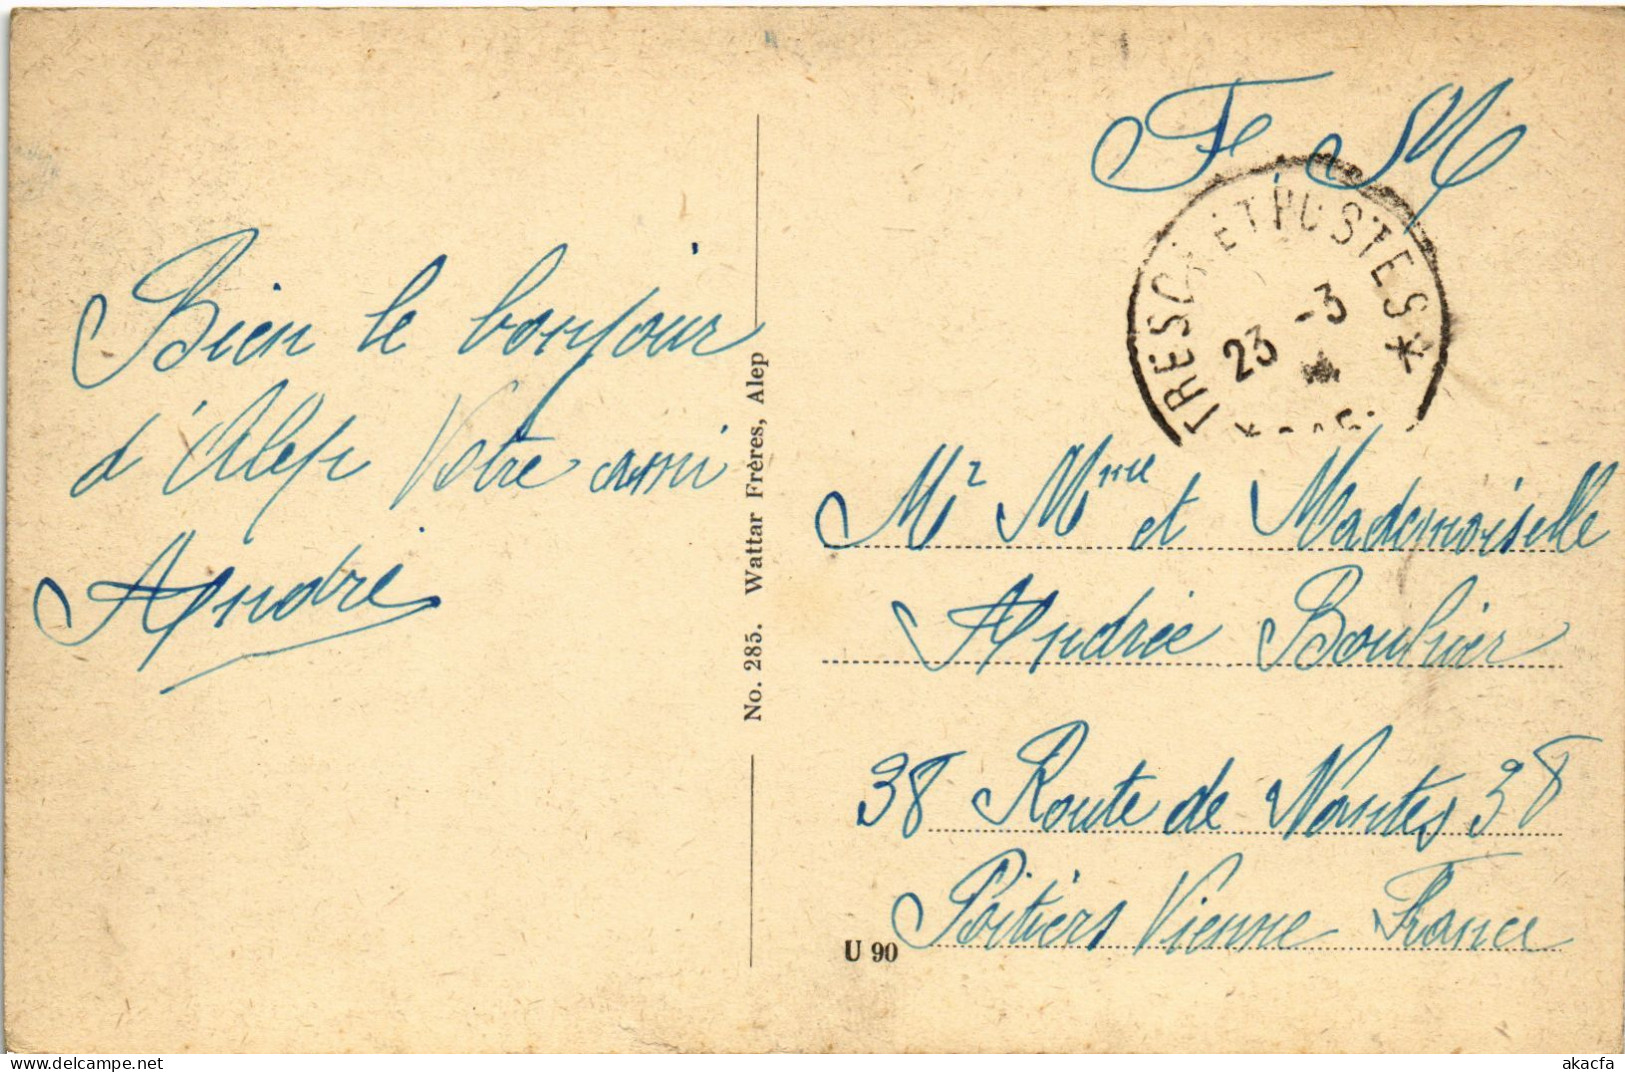 F. M
TRESOR ET POSTES *
23 -3
Bien le bonjour
d'Alep Votre ami
André
No. 285. Wattar Frères, Alep
Mr Mme et Mademoiselle
Andrée Boulnier
38 Route de Nantes 38
Poitiers Vienne France
U 90
akacfa